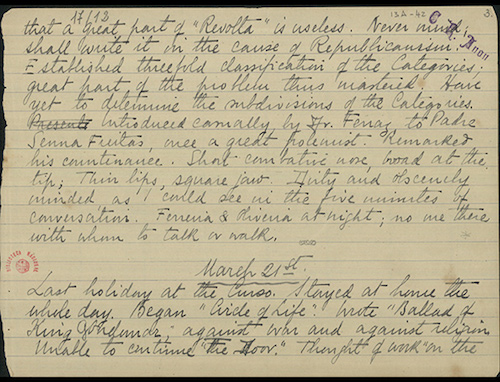 17/13
13A-42
C. R. Anon
3
that a great part of "Revolta" is useless. Never mind;
shall write it in the cause of Republicanism.
Established threefold classification of the Categories,
great part of the problem thus mastered. Have
yet to determine the subdivisions of the Categories.
Introduced carnally by Padre
Senna Freitas, once a great polemist. Remarked
his countenance. Short combative nose, broad at the
tip; Thin lips, square jaw. Dirty and obscenely
minded as I could see in the five minutes of
conversation. Ferreira & Oliveira at night; no one there
with whom to talk or walk.
March 21st.
Last holiday at the Curso. Stayed at home the
whole day. Began "Circle of Life". Wrote "Ballad of
King" against war and against religion
Unable to continue "the Door." Thought of work "on the